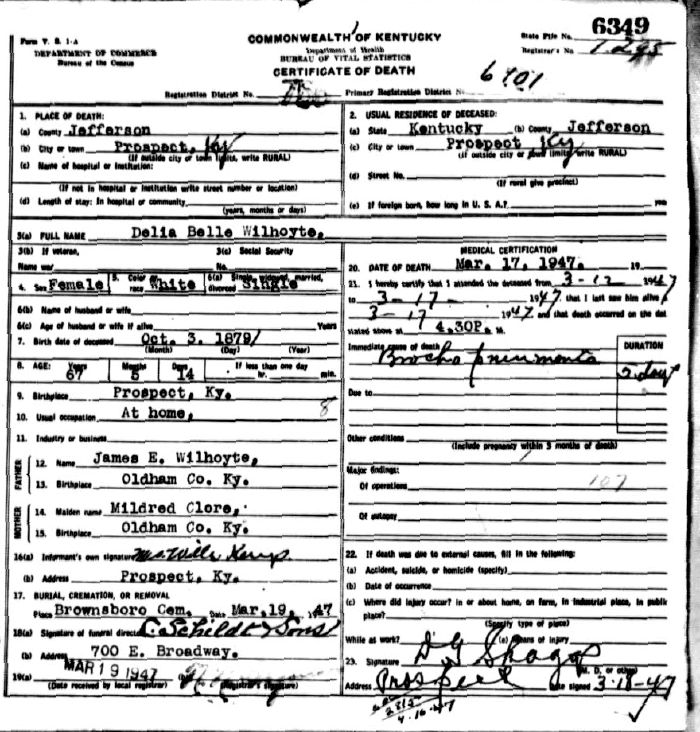 6349
Form V. S. 1-A
COMMONWEALTH OF KENTUCKY
State File No.
DEPARTMENT OF COMMERCE
Department of Health
Registrar's No 1295
Bureau of the Census
BUREAU OF VITAL STATISTICS
CERTIFICATE OF DEATH
Registration District No.
Primary Registration District No. 6701
1. PLACE OF DEATH:
(a) County Jefferson
(b) City or town Prospect, Ky
(If outside city or town limits, write RURAL)
(c) Name of hospital or institution:
(If not in hospital or institution write street number or location)
(d) Length of stay: In hospital or community
(years, months or days)
2. USUAL RESIDENCE OF DECEASED:
(a) State Kentucky (b) County Jefferson
(c) City or town Prospect Ky
(If outside city or town limits write RURAL)
(d) Street No.
(If rural give precinct)
(e) If foreign born, how long in U. S. A?
3(a) FULL NAME Delia Belle Wilhoyte,
3(b) If veteran, 3(c) Social Security
Name war No.
4. Sex Female 5. Color or race White 6(a) Single, widowed, married, divorced Single
6(b) Name of husband or wife
6(c) Age of husband or wife if alive Years
7. Birth date of deceased Oct. 3. 1879
(Month) (Day) (Year)
8. AGE: Years 67 Months 5 Days 14 If less than one day hr. min.
9. Birthplace Prospect, Ky.
10. Usual occupation At home, 8
11. Industry or business
FATHER
12. Name James E. Wilhoyte,
13. Birthplace Oldham Co. Ky.
MOTHER
14. Maiden name Mildred Clore,
15. Birthplace Oldham Co. Ky.
16(a) Informant's own signature
(b) Address Prospect, Ky.
17. BURIAL, CREMATION, OR REMOVAL
Place Brownsboro Cem. Date Mar. 19, 1947
18(a) Signature of funeral director C. Schildt & Sons
(b) Address 700 E. Broadway.
19(a) MAR 19 1947 (b)
(Date received by local registrar) (Registrar's signature)
MEDICAL CERTIFICATION
20. DATE OF DEATH Mar. 17, 1947. 19
21. I hereby certify that I attended the deceased from 3-12 1947
to 3-17- 1947, that I last saw him alive
3-17 1947 and that death occurred on the dat
stated above at 4.30P. M.
Immediate cause of death DURATION
Brocho pneumonia 5 day
Due to
Other conditions
(Include pregnancy within 3 months of death)
Major findings:
Of operations 107
Of autopsy
22. If death was due to external causes, fill in the following:
(a) Accident, suicide, or homicide (specify)
(b) Date of occurrence
(c) Where did injury occur? in or about home, on farm, in industrial place, in public
place?
(Specify type of place)
While at work? (e) Means of injury
23. Signature D G
(M. D. or other)
Address Prospect Date signed 3-18-47
4-16-47